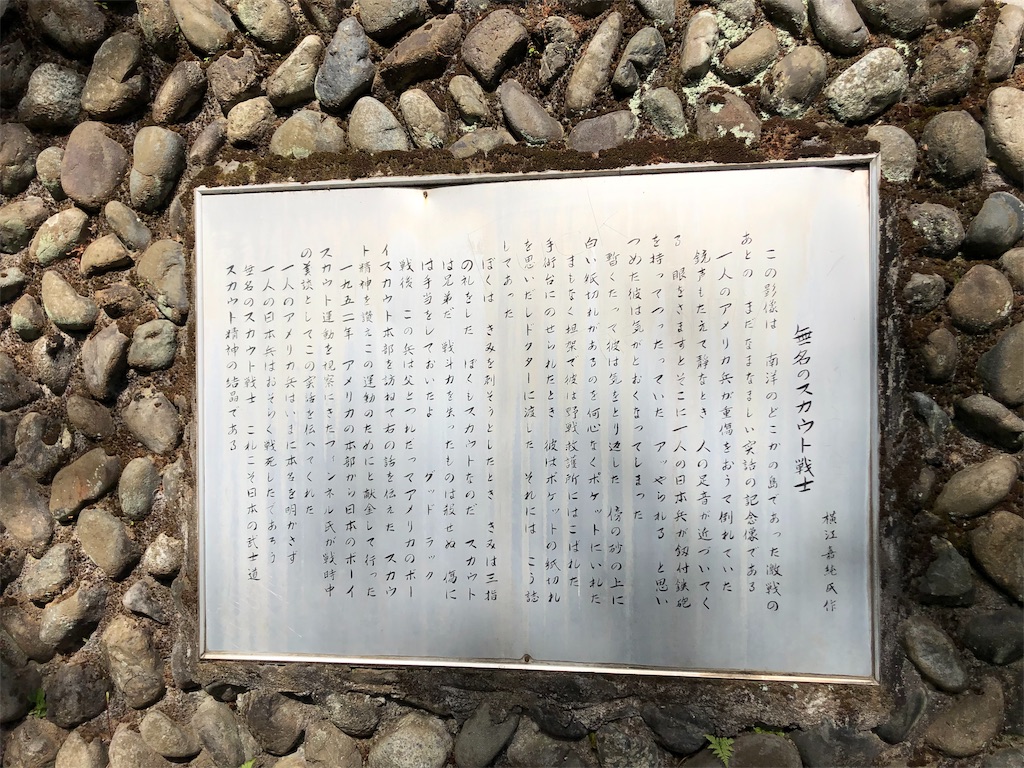 無名のスカウト戦士
横江嘉純氏作
この影像は　南洋のどこかの島であった激戦の
あとの　まだなまなましい実話の記念像である
一人のアメリカ兵が重傷をおうて倒れていた
銃声もたえて静なとき　人の足音が近づいてく
る　眼をさますとそこに一人の日本兵が剱付鉄砲
を持ってつったっていた　アッやられる　と思い
つめた彼は気がとおくなってしまった
暫くたって彼は気をとり辺した　傍の砂の上に
白い紙切れがあるのを何心なくポケットにいれた
まもなく担架で彼は野戦救護所にはこばれた
手術台にのせられたとき　彼はポケットの紙切れ
を思いだしドクターに渡した　それには　こう誌
してあった
ぼくは　きみを刺そうとしたとき　きみは三指
の礼をした　ぼくもスカウトなのだ　スカウト
は兄弟だ　戦斗力を失ったものは殺せぬ　傷に
は手当をしておいたよ　グッド　ラック
戦後　この兵は父とつれだってアメリカのボー
イスカウト本部を訪ねて右の話を伝えた　スカウ
ト精神を讃えこの運動のためにと献金して行った
一九五二年　アメリカの本部から日本のボーイ
スカウト運動を視察にきたフィンネル氏が戦時中
の美談としてこの実話を伝へてくれた
一人のアメリカ兵はいまに本名を明かさず
一人の日本兵はおそらく戦死したであろう
無名のスカウト戦士　これこそ日本の武士道
スカウト精神の結晶である